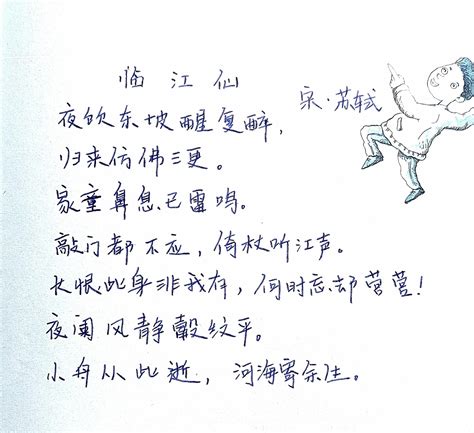 临江仙
宋·苏轼
夜饮东坡醒复醉，
归来仿佛三更。
家童鼻息已雷鸣。
敲门都不应，倚杖听江声。
长恨此身非我有，何时忘却营营！
夜阑风静縠纹平。
小舟从此逝，河海寄余生。